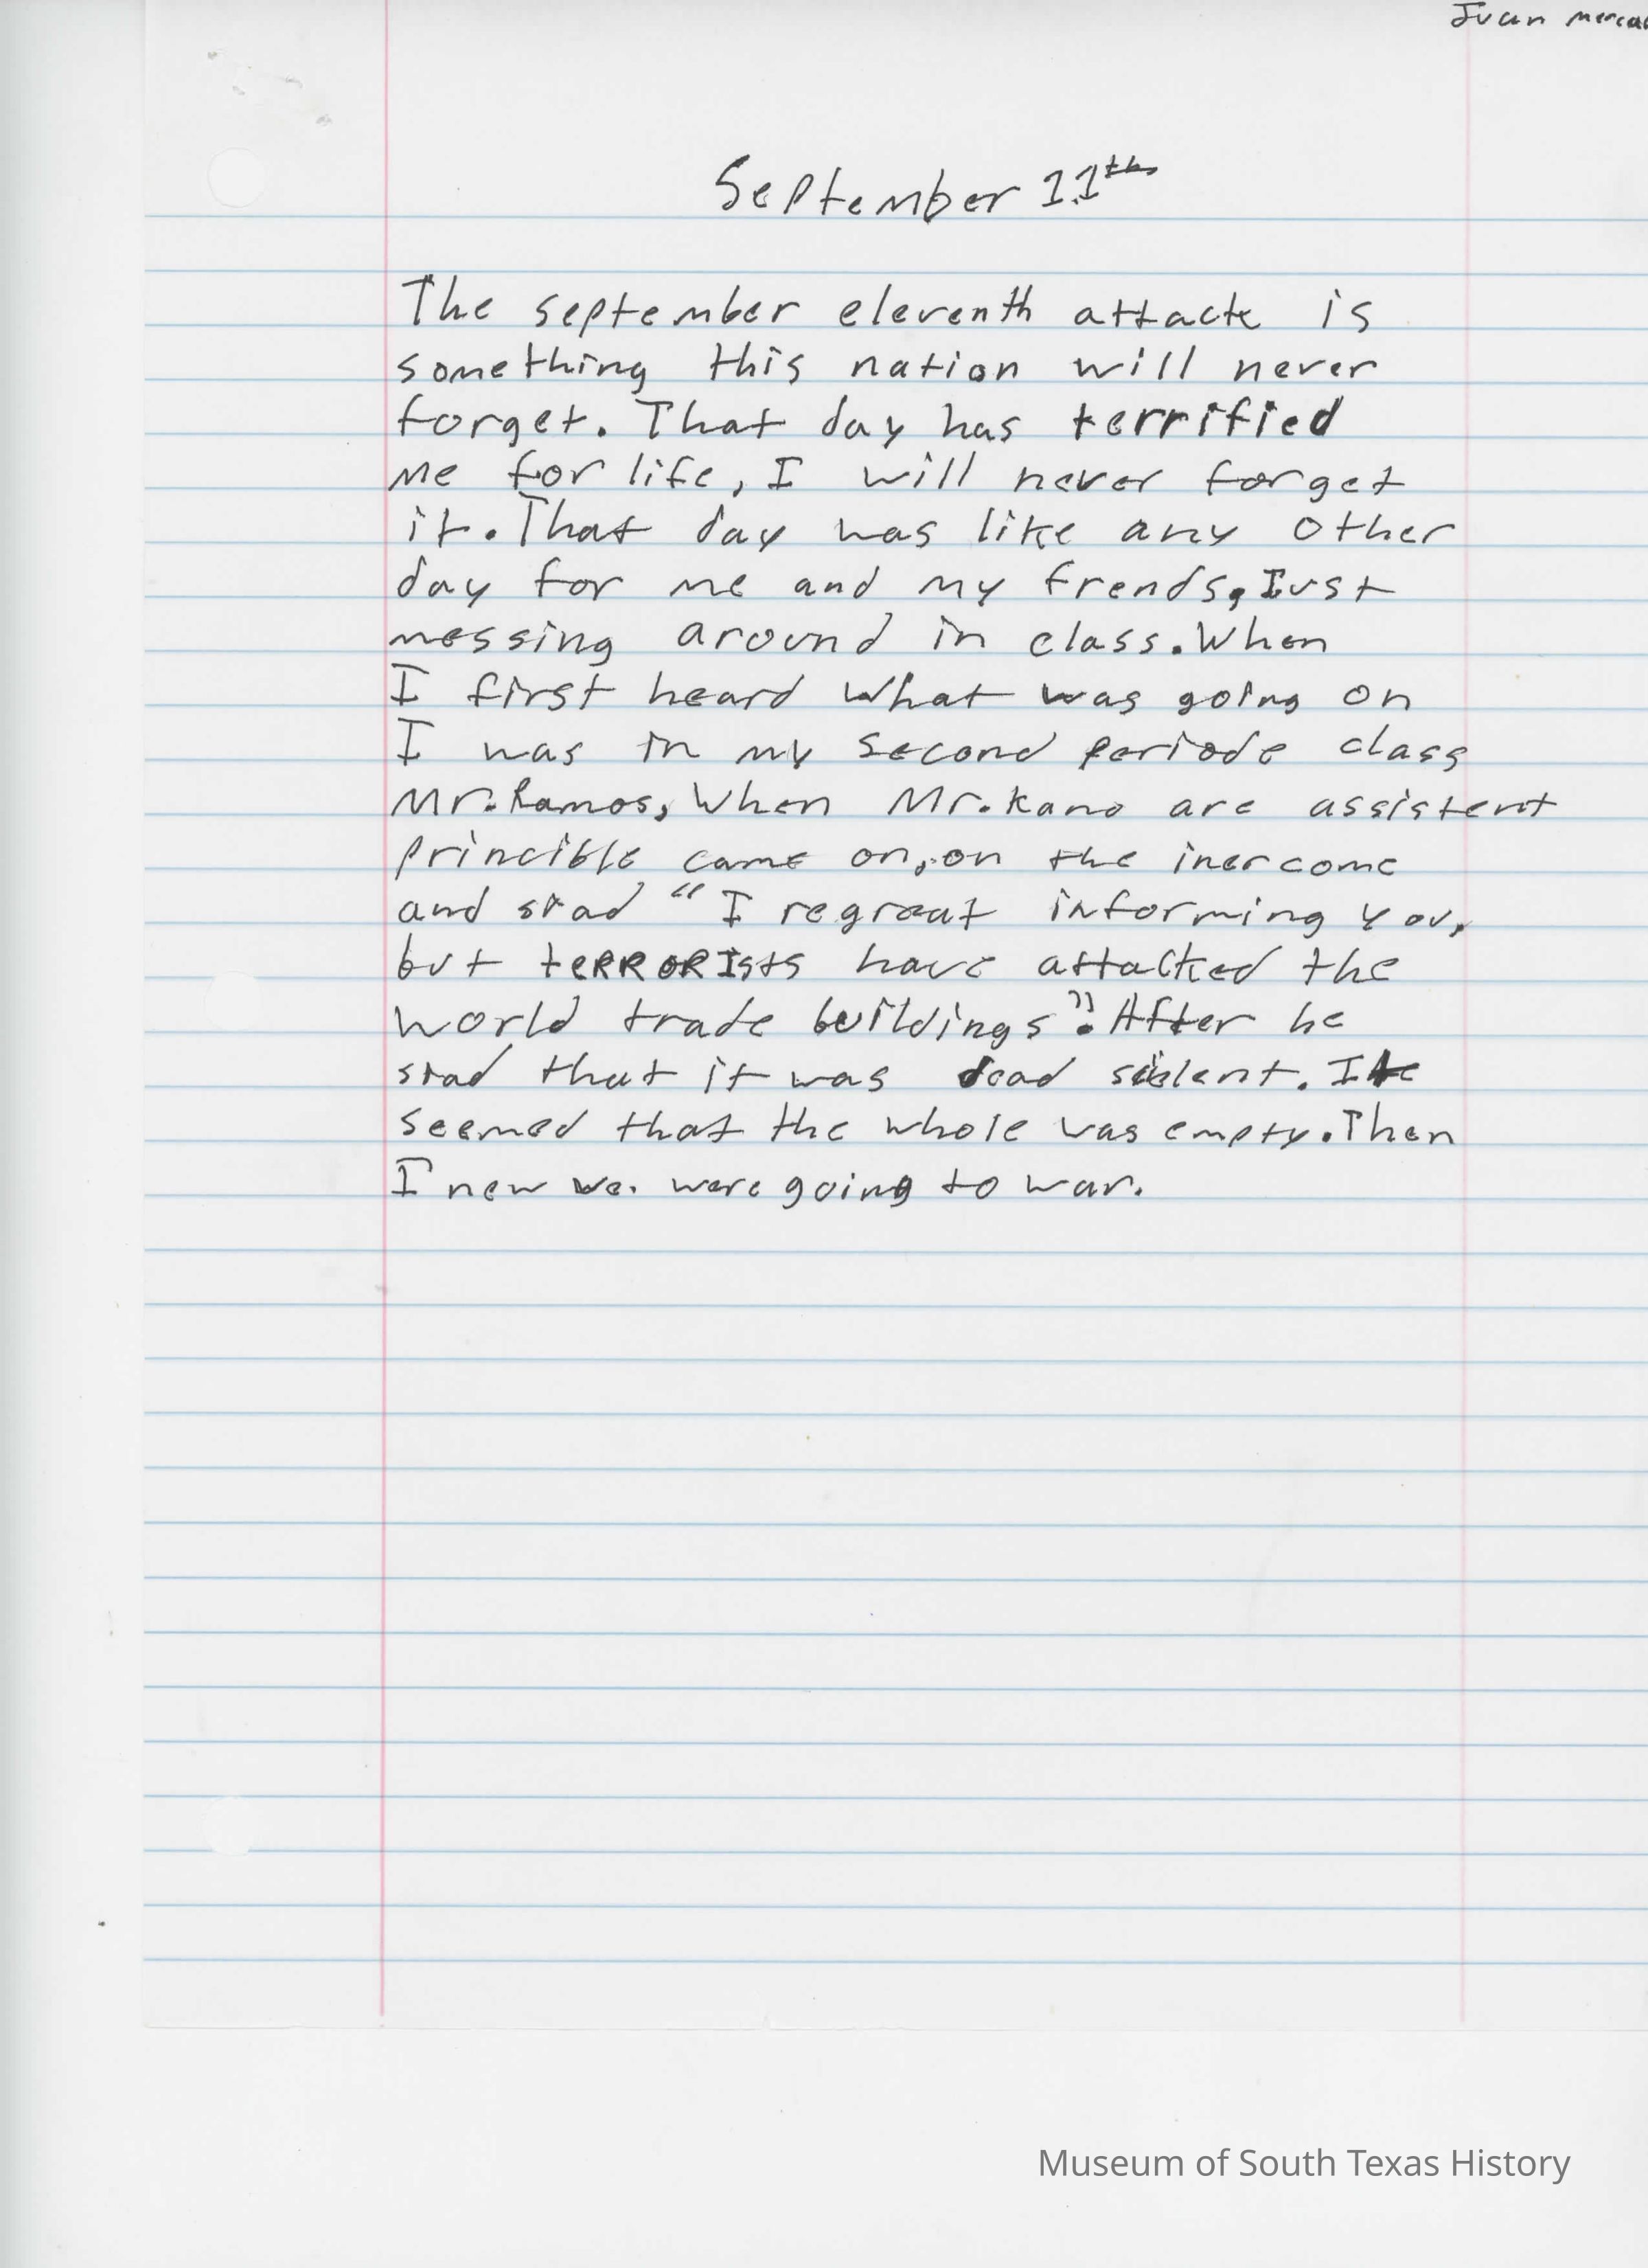 Juan
September 11th
The september eleventh attack is
something this nation will never
forget. That day has terrified
me for life, I will never forget
it. That day was like any other
day for me and my frends, Just
messing around in class. When
I first heard what was going on
I was in my second periode class
Mr. Ramos, When Mr. Kano are assistent
principle came on, on the inercome
and siad "I regreat informing you,
but teRRORIsts have attacked the
world trade buildings". After he
siad that it was dead silent. It
seemed that the whole was empty. Then
I new we. were going to war.
Museum of South Texas History